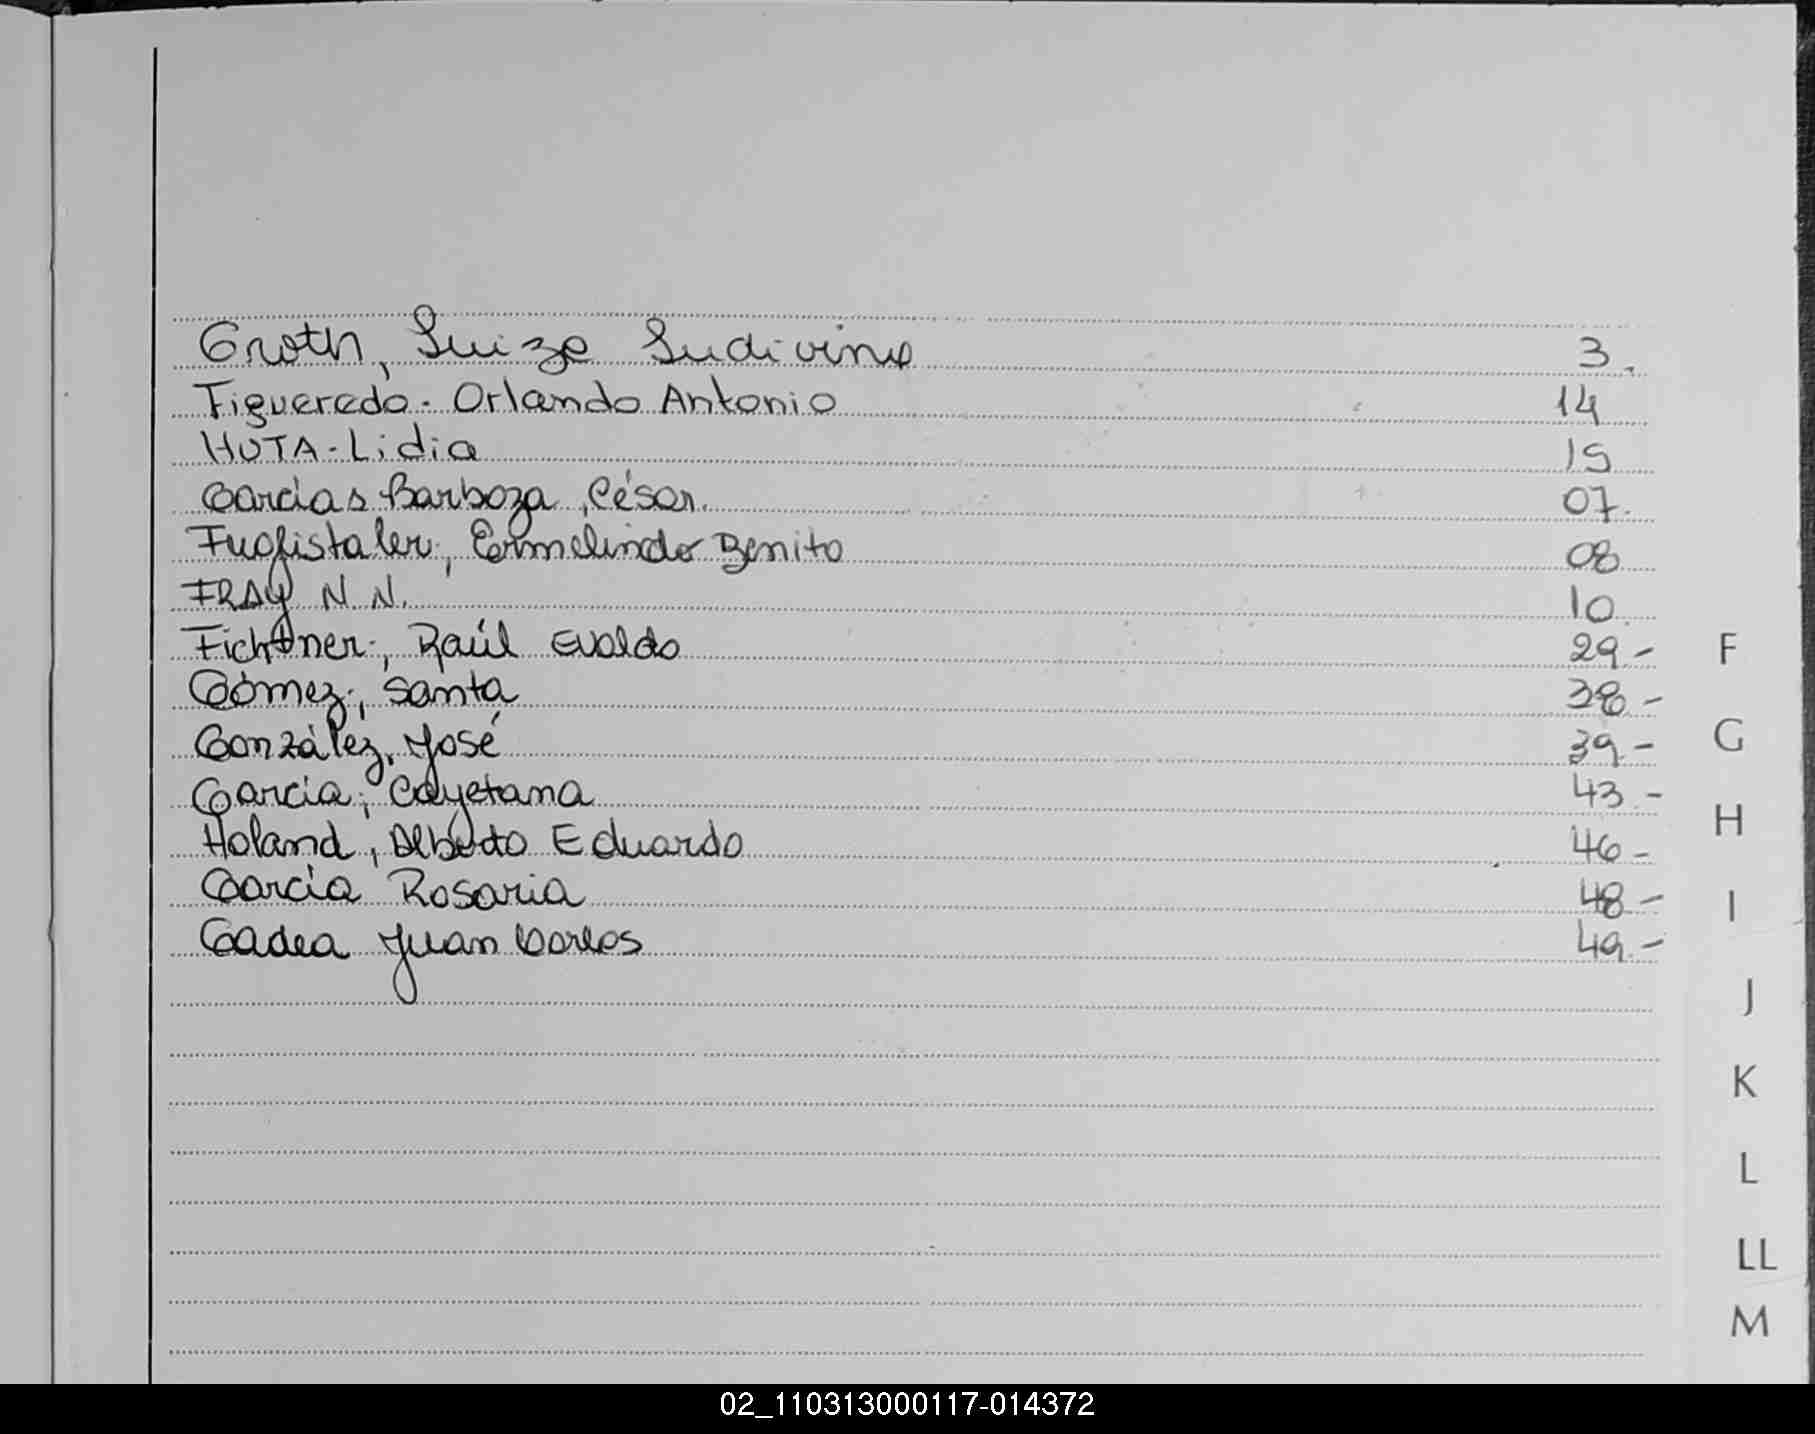 Groth, Luiza Ludivina 3.
Figueredo - Orlando Antonio 14
HUTA - Lidia 15
Garcias Barboza, César. 07.
Fugfistaler, Ermelindo Benito 08
FRAY N.N. 10
Fichtner, Raúl Evaldo 29.-
Gómez, Santa 38.-
González, José 39.-
García, Cayetana 43.-
Holand, Alberto Eduardo 46-
García Rosaria 48-
Gadea Juan Carlos 49.-
F
G
H
I
J
K
L
LL
M
02_110313000117-014372